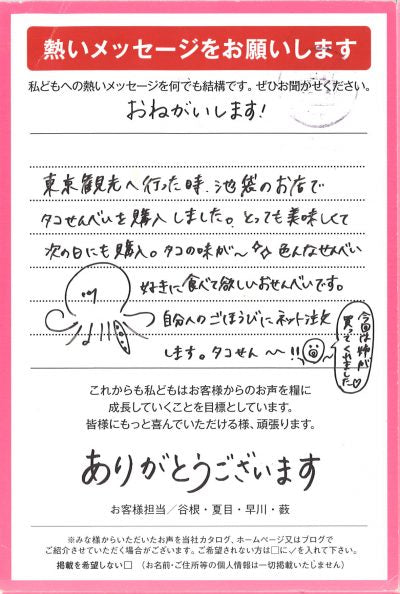 熱いメッセージをお願いします
私どもへの熱いメッセージを何でも結構です。ぜひお聞かせください。
おねがいします!
東京観光へ行った時、池袋のお店で
タコせんべいを購入しました。とっても美味しくて
次の日にも購入。タコの味が〜 色んなせんべい
好きに食べて欲しいおせんべいです。
自分へのごほうびにネット注文
します。タコせん〜!!
今回は姉が
買ってくれました♡
これからも私どもはお客様からのお声を糧に
成長していくことを目標としています。
皆様にもっと喜んでいただける様、頑張ります。
ありがとうございます
お客様担当/谷根・夏目・早川・薮
※みな様からいただいたお声を当社カタログ、ホームページ又はブログで
ご紹介させていただく場合がございます。ご希望されない方は□に✓を入れて下さい。
掲載を希望しない□ (お名前・ご住所等の個人情報は一切掲載いたしません)